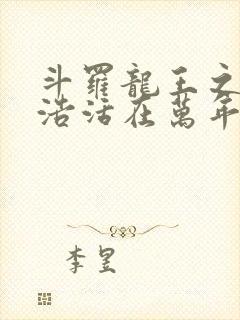 斗羅龍王之
浩活在萬年
李昱